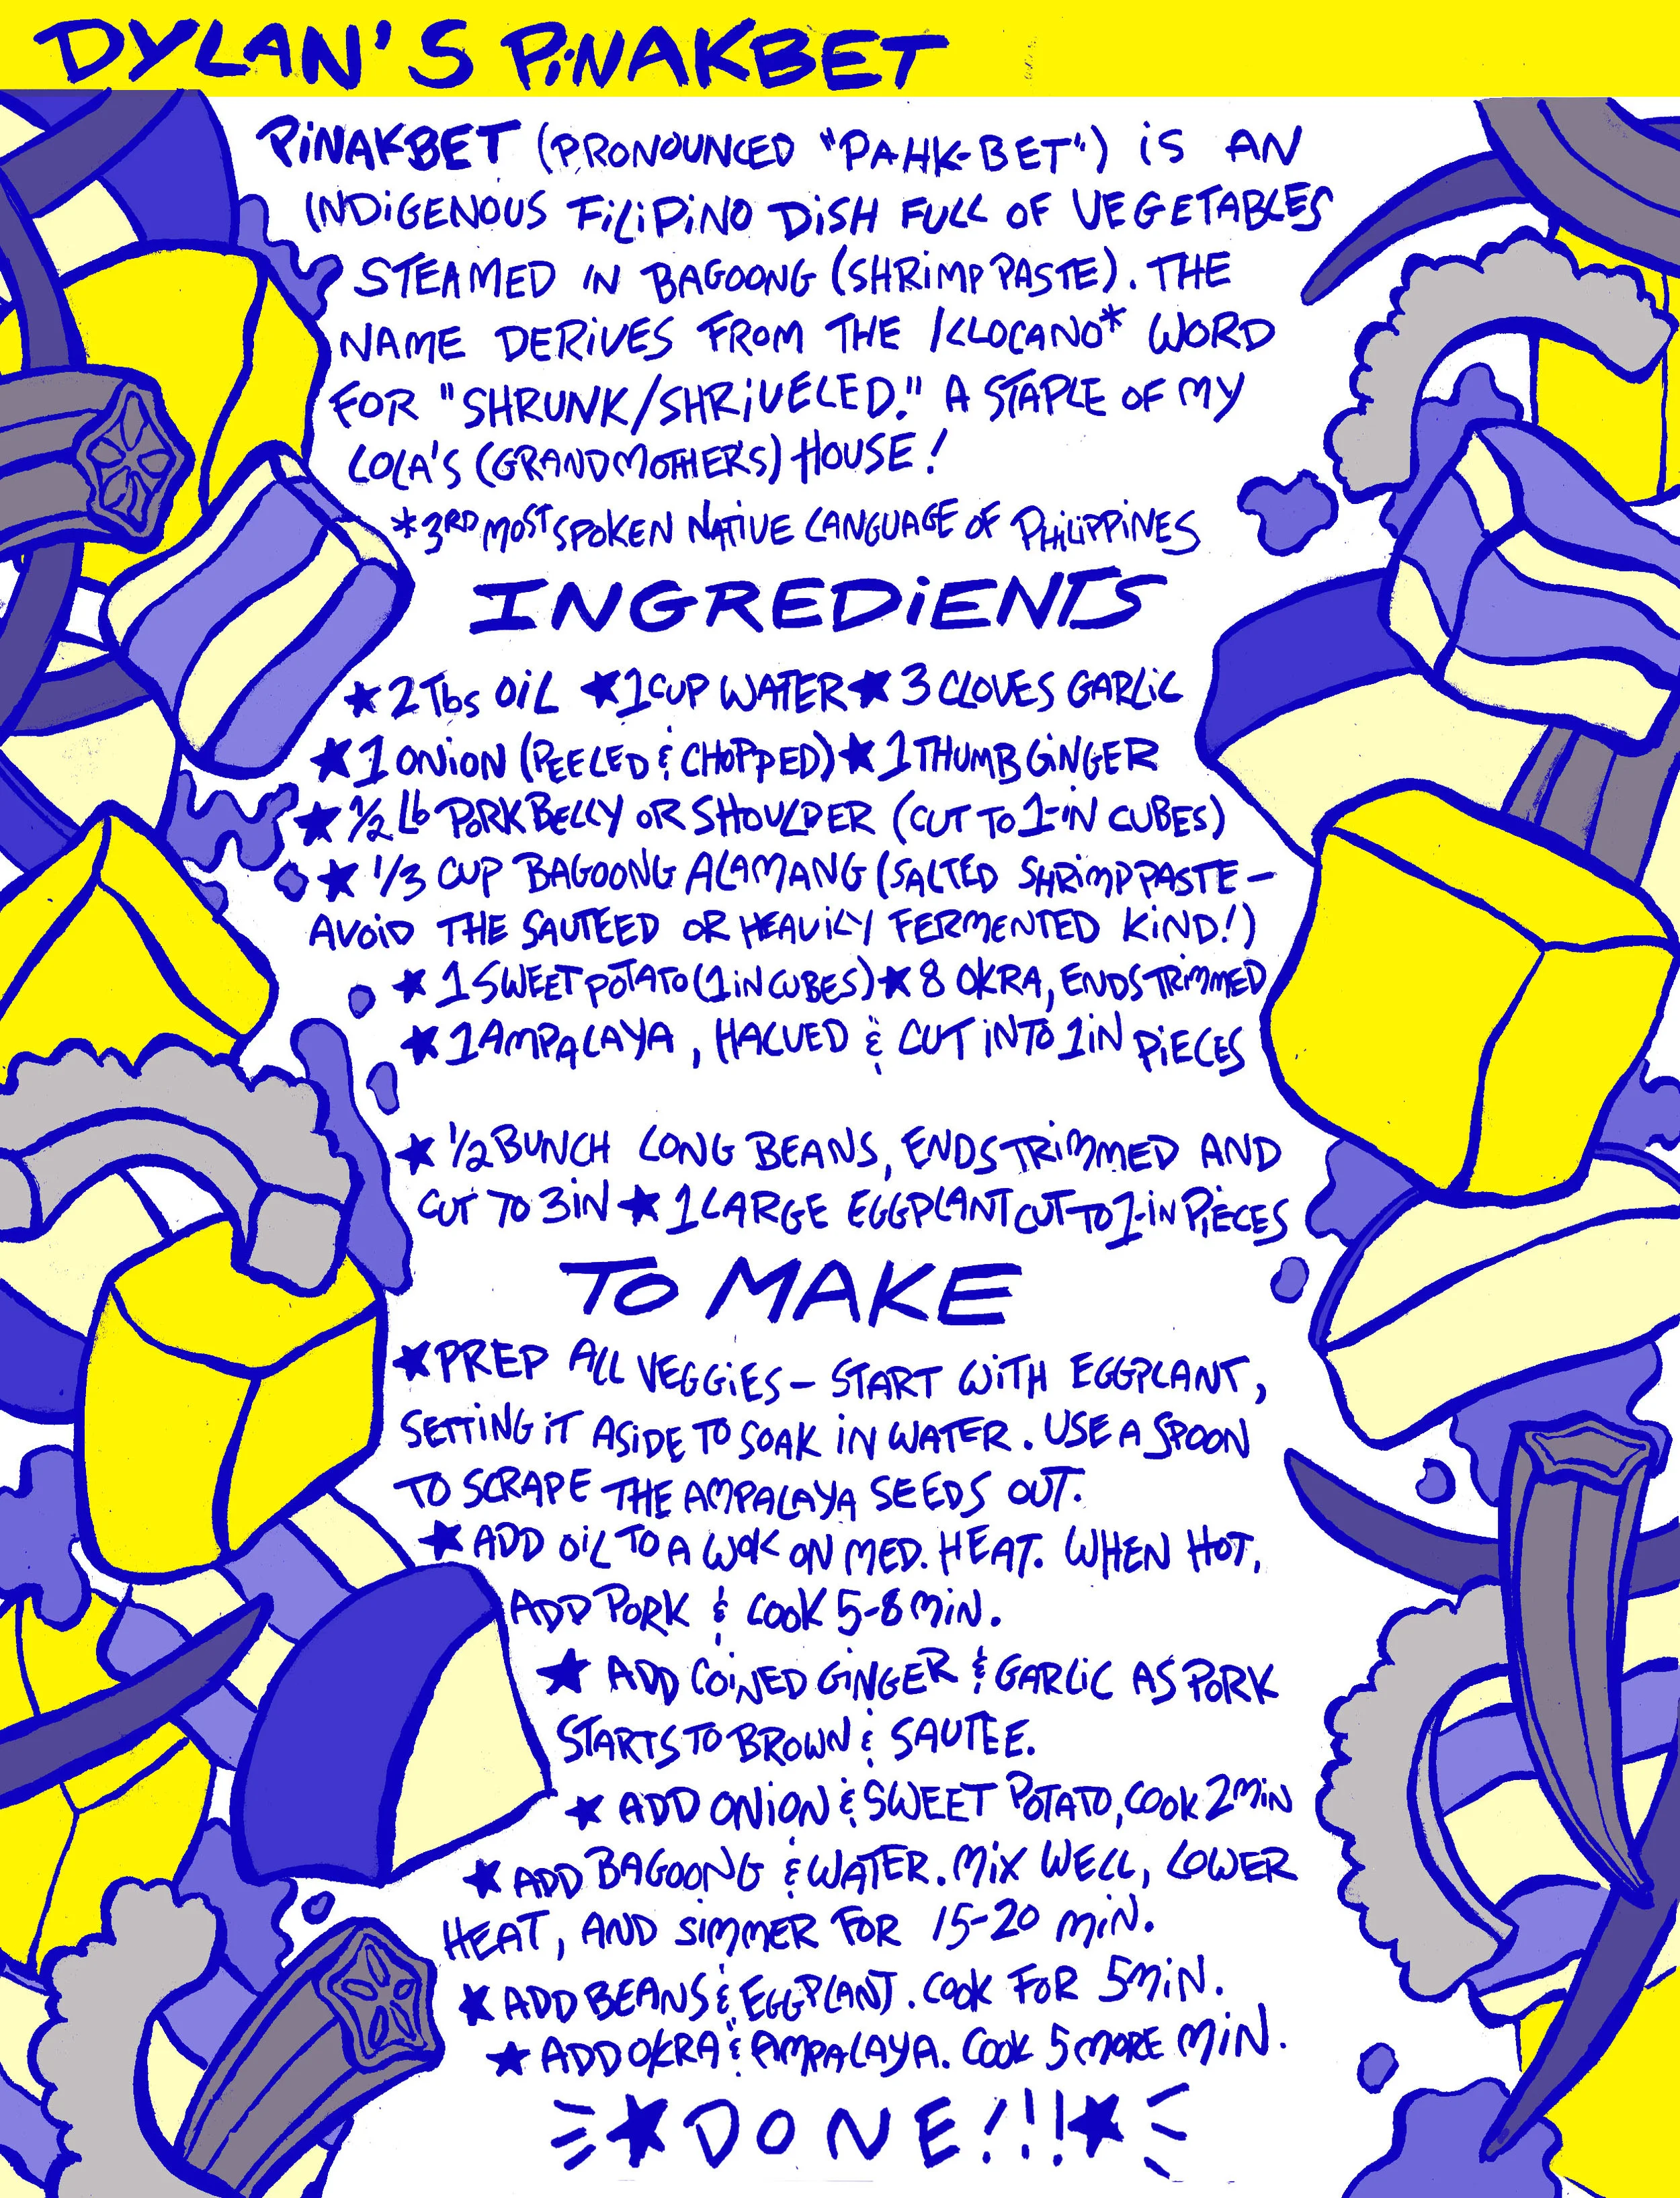 DYLAN'S PiNAKBET
PiNAKBET (PRONOUNCED "PAHK-BET") iS AN
INDiGENOUS FiLiPiNO DiSH FULL OF VEGETABLES
STEAMED IN BAGOONG (SHRiMP PASTE). THE
NAME DERiVES FROM THE ILLOCANO* WORD
FOR "SHRUNK/SHRiVELED." A STAPLE OF MY
LOLA'S (GRANDMOTHERS) HOUSE!
*3RD MOST SPOKEN NATiVE LANGUAGE OF PHiLiPPiNES
INGREDiENTS
★ 2 Tbs OiL ★ 1 CUP WATER ★ 3 CLOVES GARLiC
★ 1 ONiON (PEELED & CHOPPED) ★ 1 THUMB GiNGER
★ 1/2 Lb PORK BELLY OR SHOULDER (CUT TO 1-iN CUBES)
★ 1/3 CUP BAGOONG ALAMANG (SALTED SHRiMP PASTE -
AVOiD THE SAUTEED OR HEAViLY FERMENTED KiND!)
★ 1 SWEET POTATO (1 iN CUBES) ★ 8 OKRA, ENDS TRiMMED
★ 1 AMPALAYA, HALVED & CUT iNTO 1 iN PiECES
★ 1/2 BUNCH LONG BEANS, ENDS TRiMMED AND
CUT TO 3 iN ★ 1 LARGE EGGPLANT CUT TO 1-iN PiECES
TO MAKE
★ PREP ALL VEGGiES - START WiTH EGGPLANT,
SETTiNG iT ASiDE TO SOAK iN WATER. USE A SPOON
TO SCRAPE THE AMPALAYA SEEDS OUT.
★ ADD OiL TO A WOK ON MED. HEAT. WHEN HOT,
ADD PORK & COOK 5-8 MiN.
★ ADD COiNED GiNGER & GARLiC AS PORK
STARTS TO BROWN & SAUTEE.
★ ADD ONiON & SWEET POTATO, COOK 2 MiN
★ ADD BAGOONG & WATER. MiX WELL, LOWER
HEAT, AND SiMMER FOR 15-20 MiN.
★ ADD BEANS & EGGPLANT. COOK FOR 5 MiN.
★ ADD OKRA & AMPALAYA. COOK 5 MORE MiN.
★ DONE!!! ★